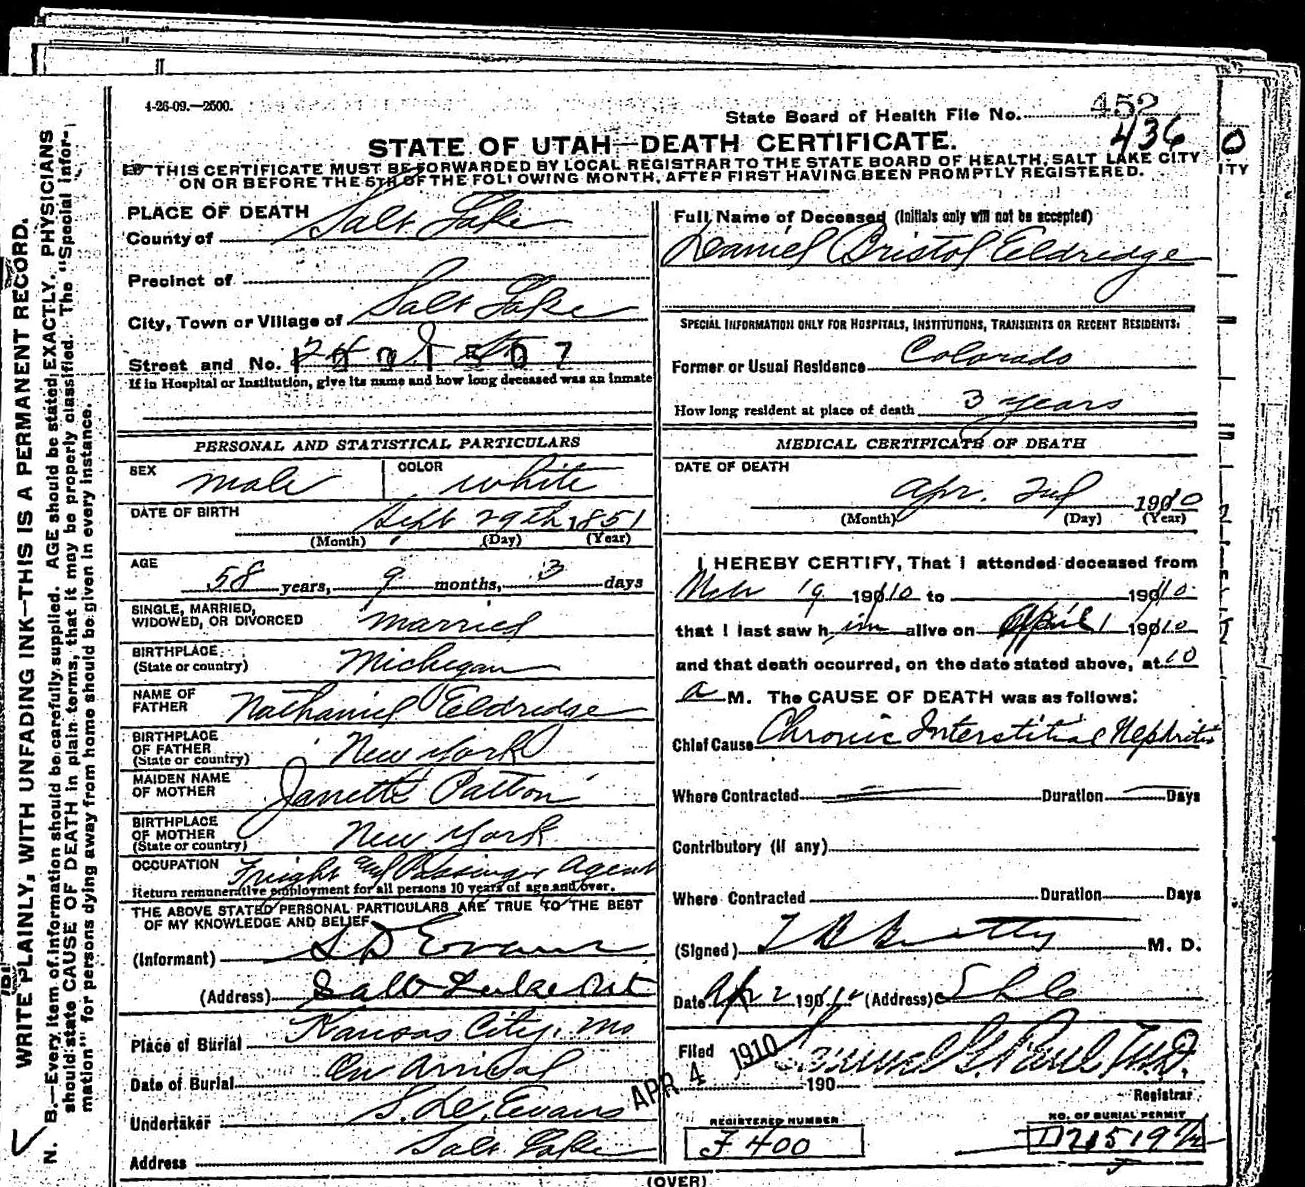 4-26-09.—2500.
State Board of Health File No. 452
436
STATE OF UTAH—DEATH CERTIFICATE.
THIS CERTIFICATE MUST BE FORWARDED BY LOCAL REGISTRAR TO THE STATE BOARD OF HEALTH, SALT LAKE CITY
ON OR BEFORE THE 5TH OF THE FOLLOWING MONTH, AFTER FIRST HAVING BEEN PROMPTLY REGISTERED.
WRITE PLAINLY, WITH UNFADING INK—THIS IS A PERMANENT RECORD.
N. B.—Every item of information should be carefully supplied. AGE should be stated EXACTLY. PHYSICIANS
should state CAUSE OF DEATH in plain terms, that it may be properly classified. The "Special Infor-
mation" for persons dying away from home should be given in every instance.
PLACE OF DEATH
County of Salt Lake
Precinct of
City, Town or Village of Salt Lake
Street and No.
If in Hospital or Institution, give its name and how long deceased was an inmate
PERSONAL AND STATISTICAL PARTICULARS
SEX male COLOR white
DATE OF BIRTH Sept 29th 1851
(Month) (Day) (Year)
AGE 58 years, 9 months, 3 days
SINGLE, MARRIED,
WIDOWED, OR DIVORCED married
BIRTHPLACE
(State or country) Michigan
NAME OF
FATHER Nathaniel Eldredge
BIRTHPLACE
OF FATHER
(State or country) New York
MAIDEN NAME
OF MOTHER Janette Patton
BIRTHPLACE
OF MOTHER
(State or country) New York
OCCUPATION Freight and Passenger Agent
Return remunerative employment for all persons 10 years of age and over.
THE ABOVE STATED PERSONAL PARTICULARS ARE TRUE TO THE BEST
OF MY KNOWLEDGE AND BELIEF
(Informant) S D Evans
(Address) Salt Lake Ut
Place of Burial Kansas City, Mo
Date of Burial On Arrival
Undertaker S. D. Evans
Address Salt Lake
Full Name of Deceased (Initials only will not be accepted)
Daniel Bristol Eldredge
SPECIAL INFORMATION ONLY FOR HOSPITALS, INSTITUTIONS, TRANSIENTS OR RECENT RESIDENTS:
Former or Usual Residence Colorado
How long resident at place of death 3 years
MEDICAL CERTIFICATE OF DEATH
DATE OF DEATH
Apr. 2nd 1910
(Month) (Day) (Year)
I HEREBY CERTIFY, That I attended deceased from
Mch 19 1910 to 1910
that I last saw him alive on April 1 1910
and that death occurred, on the date stated above, at 10
a M. The CAUSE OF DEATH was as follows:
Chief Cause Chronic Interstitial Nephritis
Where Contracted Duration Days
Contributory (if any)
Where Contracted Duration Days
(Signed) T B Beatty M. D.
Date Apr 2 1910 (Address) S L C
Filed APR 4 1910 190
Registrar
REGISTERED NUMBER
F 400
NO. OF BURIAL PERMIT
(OVER)